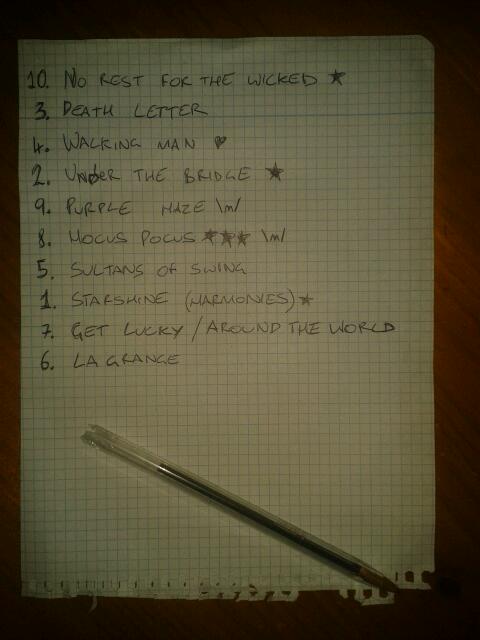 10. NO REST FOR THE WICKED ★
3. DEATH LETTER
4. WALKING MAN ♥
2. UNDER THE BRIDGE ★
9. PURPLE HAZE \m/
8. HOCUS POCUS ★★★ \m/
5. SULTANS OF SWING
1. STARSHINE (HARMONIES) ★
7. GET LUCKY / AROUND THE WORLD
6. LA GRANGE